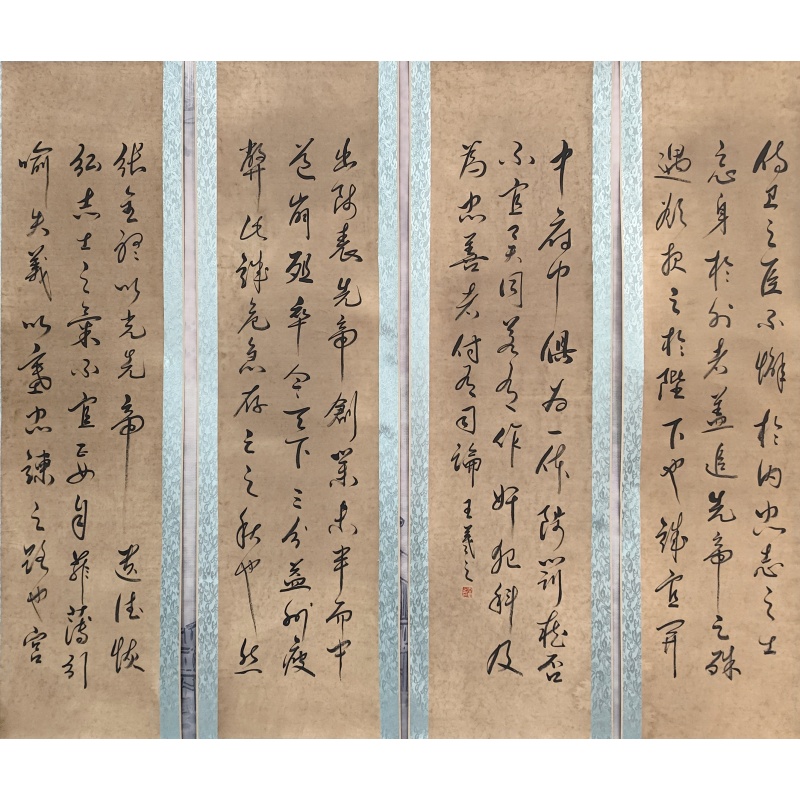 侍卫之臣不懈於内忠志之士
忘身於外者盖追先帝之殊
遇欲报之於陛下也誠宜開
中府中俱为一体陟罚臧否
不宜異同若有作奸犯科及
為忠善者付有司論 王羲之
出師表 先帝創業未半而中
道崩殂率今天下三分益州疲
弊此誠危急存亡之秋也然
張圣聽以光先帝 遗德恢
弘志士之氣不宜妄自菲薄引
喻失義以塞忠諫之路也宫